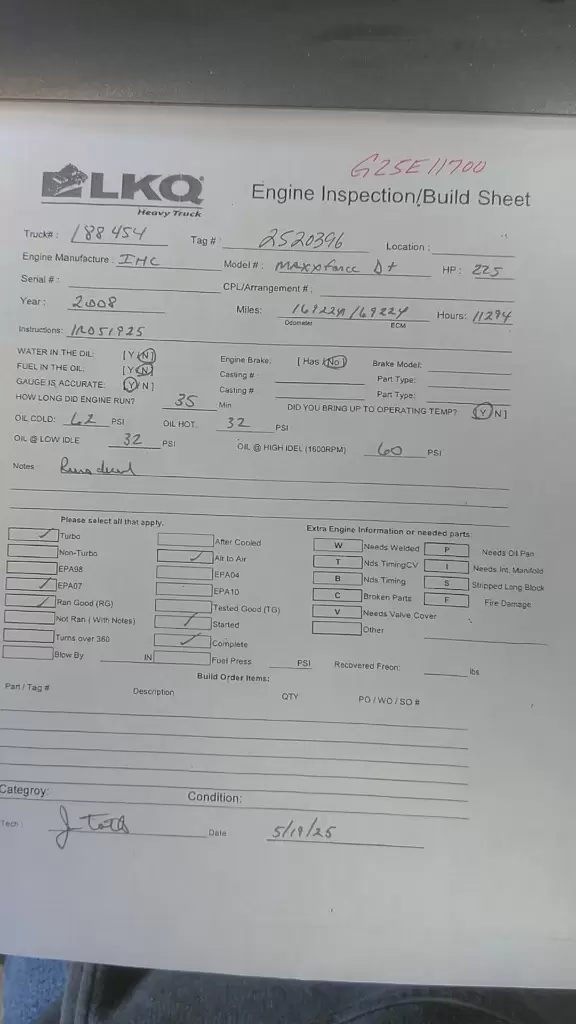 G25E11700
LKQ
Heavy Truck
Engine Inspection/Build Sheet
Truck# : 188454 Tag # : 2520396 Location :
Engine Manufacture : IHC Model # : MAXXforce Dt HP : 225
Serial # : CPL/Arrangement # :
Year : 2008 Miles: 169224 / 69224 Hours: 11294
Odometer ECM
Instructions: IR051925
WATER IN THE OIL: [ Y N ] Engine Brake: [ Has No ] Brake Model:
FUEL IN THE OIL: [ Y N ] Casting # Part Type:
GAUGE IS ACCURATE: [ Y N ] Casting # Part Type:
HOW LONG DID ENGINE RUN? 35 Min DID YOU BRING UP TO OPERATING TEMP? [ Y N ]
OIL COLD: 62 PSI OIL HOT: 32 PSI
OIL @ LOW IDLE 32 PSI OIL @ HIGH IDEL (1600RPM) 60 PSI
Notes
Please select all that apply. Extra Engine Information or needed parts:
Turbo After Cooled W Needs Welded P Needs Oil Pan
Non-Turbo Air to Air T Nds TimingCV I Needs Int. Manifold
EPA98 EPA04 B Nds Timing S Stripped Long Block
EPA07 EPA10 C Broken Parts F Fire Damage
Ran Good (RG) Tested Good (TG) V Needs Valve Cover
Not Ran ( With Notes) Started Other
Turns over 360 Complete
Blow By IN Fuel Press PSI Recovered Freon: lbs
Build Order Items:
Part / Tag # Description QTY PO / WO / SO #
Categroy: Condition:
Tech : J Toth Date 5/19/25